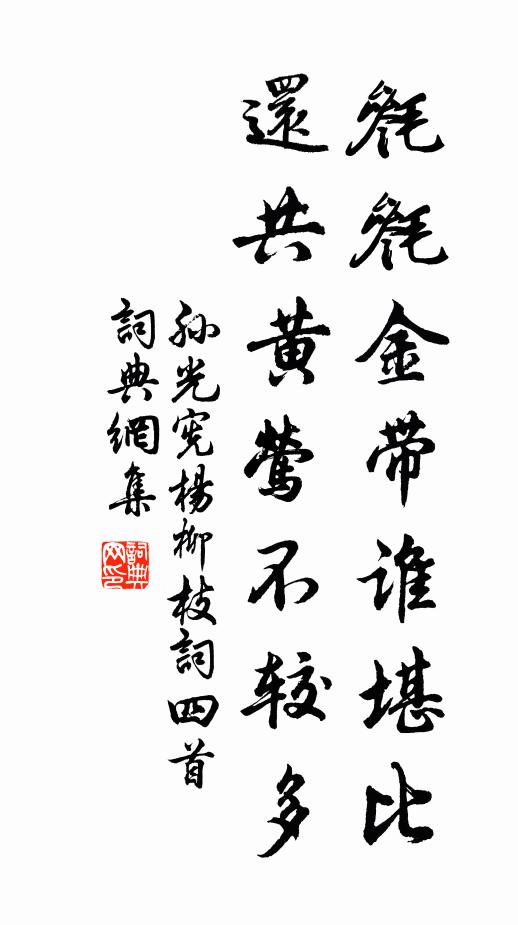 毵毵金带谁堪比
還共黄鶯不较多
孙光宪楊柳枝詞四首
詞典網集
詞典
网印